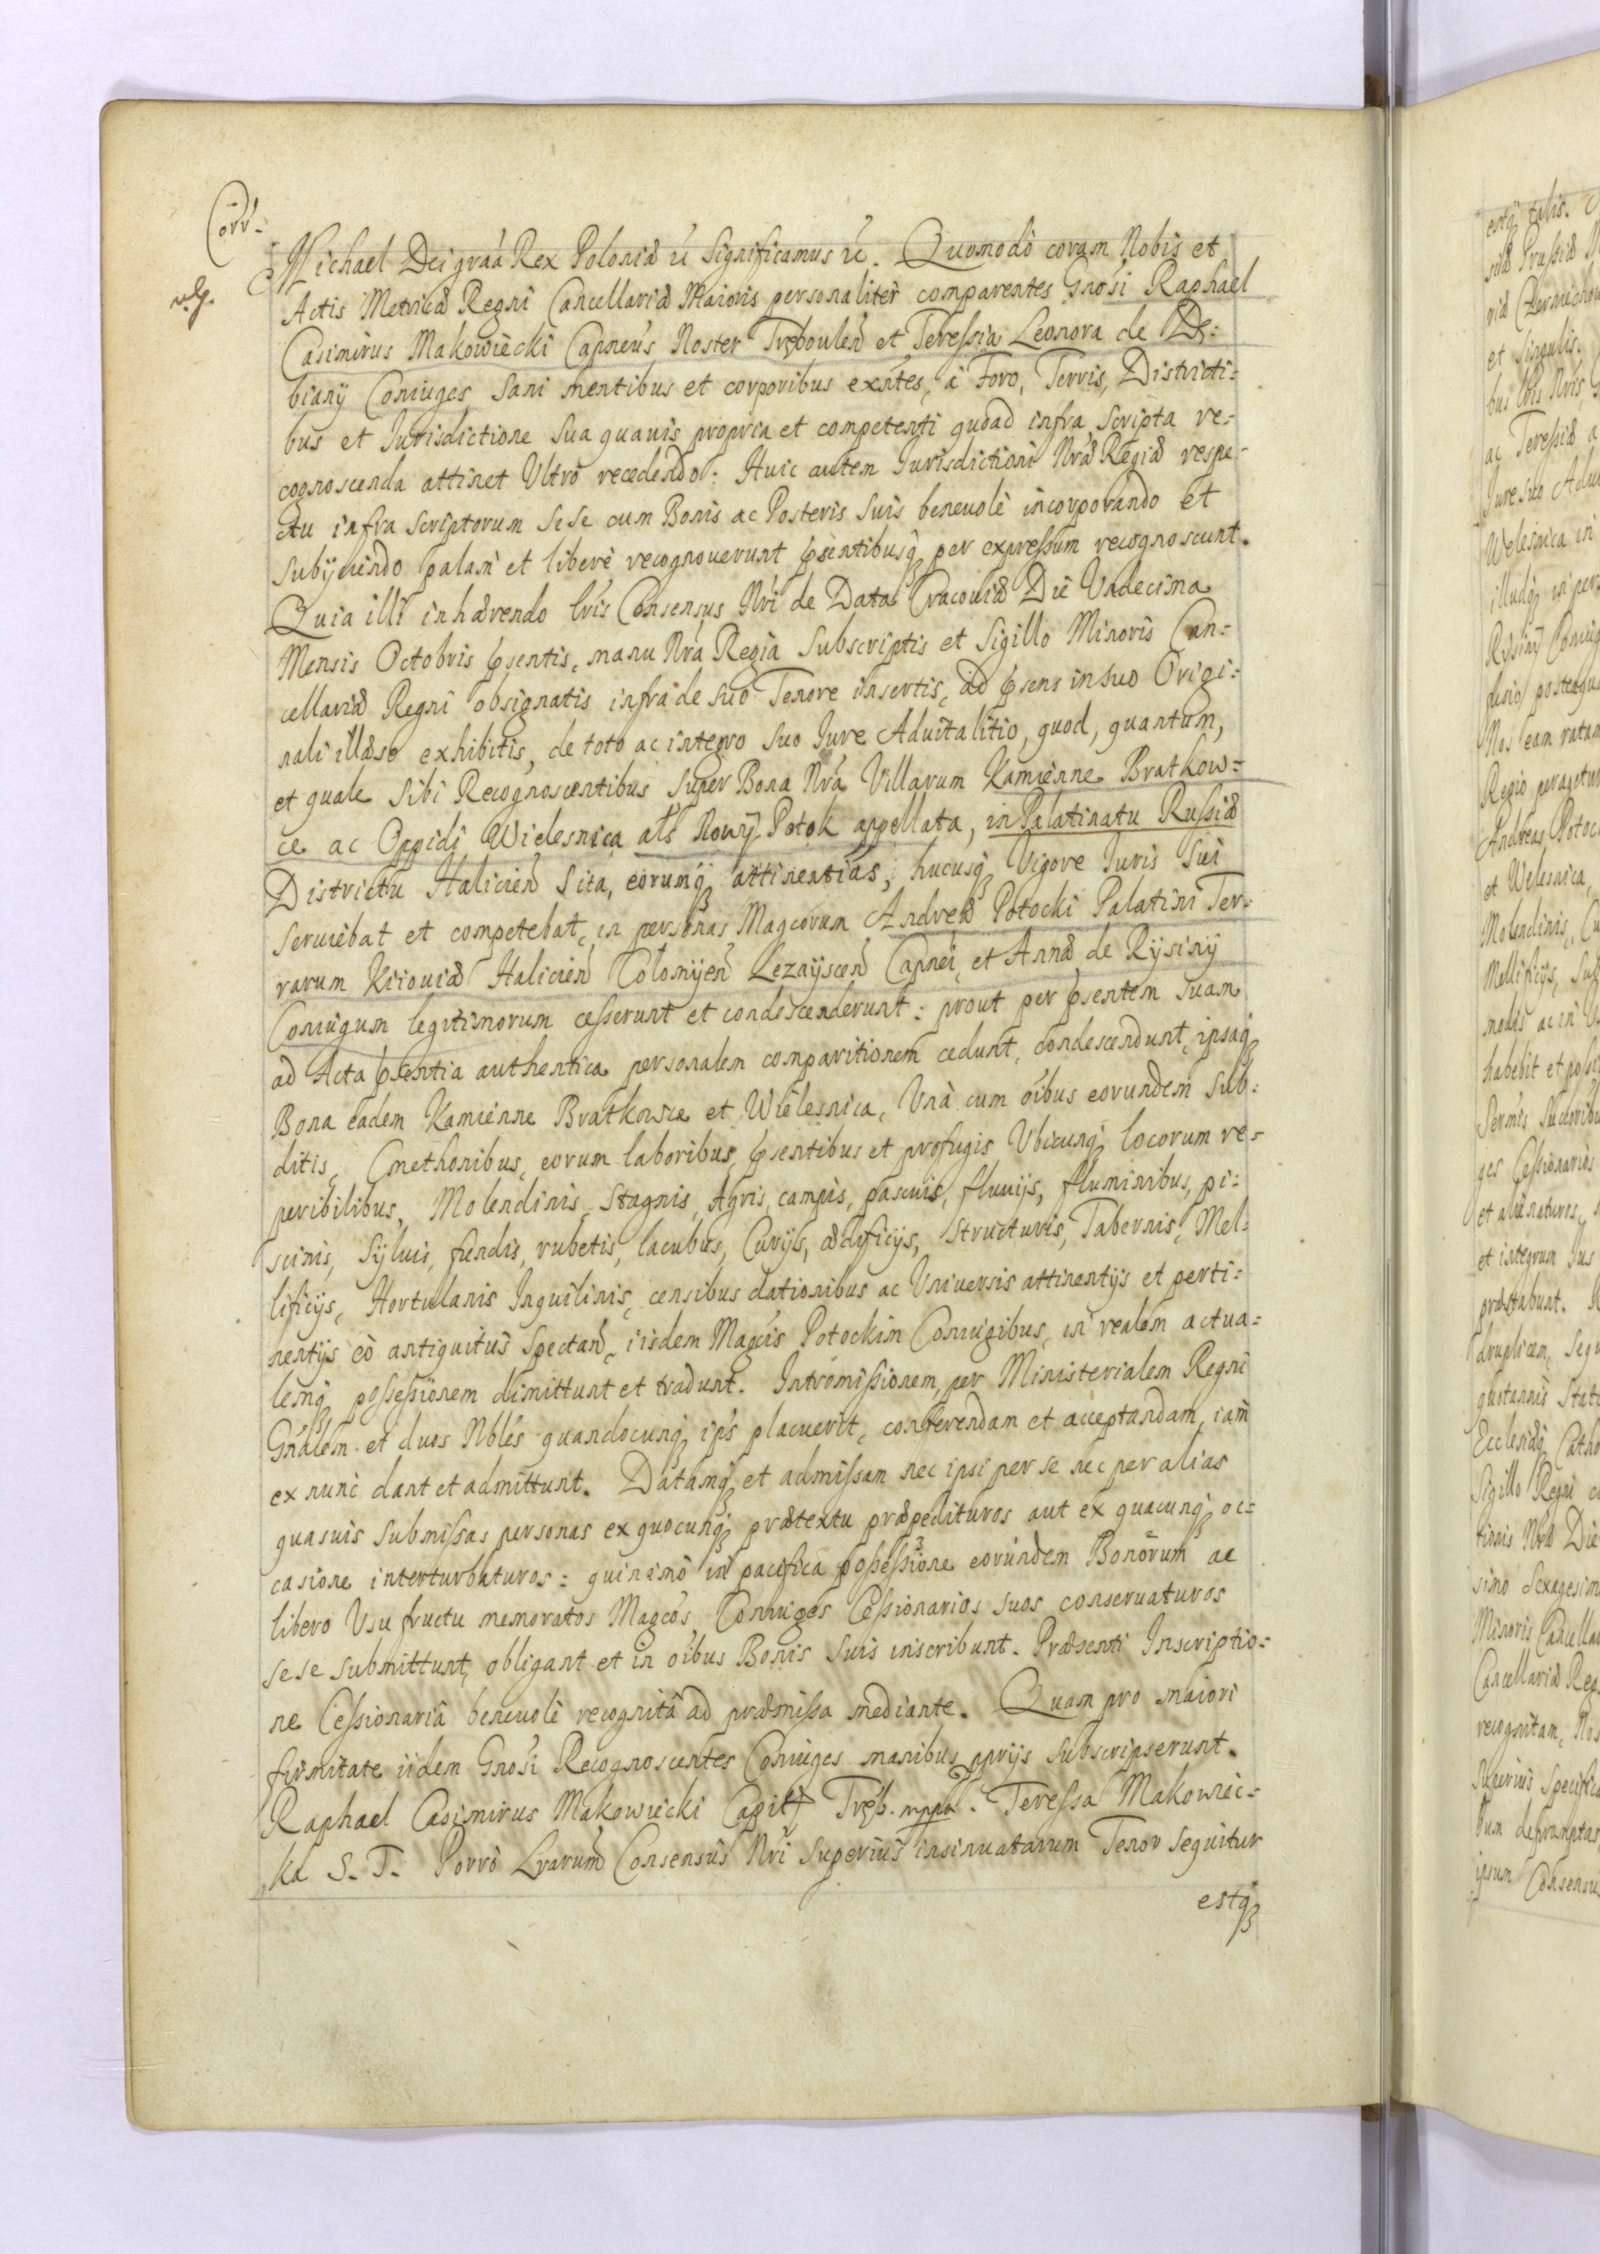 Corr.
Michael Dei graa Rex Poloniæ &c Significamus &c. Quomodò coram Nobis et
Actis Metricæ Regni Cancellariæ Maioris personalitèr comparentes Gnosi Raphael
Casimirus Makowiecki Capneus Noster Tręboulen et Teressia Leonora de De=
biany Coniuges Sani mentibus et corporibus exñtes, à Foro, Terris, Districti=
bus et Iurisdictione Sua quauis propria et competenti quoad infra Scripta re=
cognoscenda attinet Ultrò recedendo: Huic autem Jurisdictioni Nræ Regiæ respe=
ctu infra Scriptorum Sese cum Bonis ac Posteris Suis beneuolè incorporando et
Subijciendo palàm et liberè recognouerunt psentibusq; per expressum recognoscunt.
Quia illi inhærendo lris Consensus Nri de Data Cracouiæ Die Undecima
Mensis Octobris psentis, manu Nra Regia Subscriptis et Sigillo Minoris Can=
cellariæ Regni obsignatis infra de suo Tenore insertis, ad psens in suo Origi=
nali illæse exhibitis, de toto ac integro Suo Jure Aduitalitio, quod, quantum,
et quale Sibi Recognoscentibus Super Bona Nra Villarum Kamienne Bratkow=
ce ac Oppidi Wielesnica als Nowy Potok appellata, in Palatinatu Russiæ
Districtu Halicien Sita, eorumq; attinentias, hucusq; Vigore Iuris Sui
Seruiebat et competebat, in personas Magcorum Andreæ Potocki Palatini Ter=
rarum Kiiouiæ Halicien Colomyen Lezayscen Capnei, et Annæ de Rysiny
Coniugum legitimorum cesserunt et condescenderunt: prout per psentem Suam
ad Acta psentia authentica personalem comparitionem cedunt, condescendunt, ipsaq;
Bona eadem Kamienne Bratkowce et Wielesnica, Unà cum oibus eorundem Sub=
ditis, Cmethonibus, eorum laboribus, psentibus et profugis Ubicunq; locorum re=
peribilibus, Molendinis, Stagnis, Agris, campis, pascuis, fluuijs, fluminibus, pi=
scinis, Syluis, fundis, rubetis, lacubus, Curijs, ædificijs, Structuris, Tabernis, Mel=
lificijs, Hortulanis Inquilinis, censibus dationibus ac Uniuersis attinentijs et perti=
nentijs eò antiquitùs Spectan, iisdem Magcis Potockim Coniugibus, in realem actua=
lemq; possessionem dimittunt et tradunt. Intromissionem per Ministerialem Regni
Gnalem et duos Nbles quandocunq; ipis placuerit, conferendam et acceptandam, iam
ex nunc dant et admittunt. Datamq; et admissam nec ipsi per se nec per alias
quasuis Submissas personas ex quocunq; prætextu præpedituros aut ex quacunq; oc=
casione interturbaturos: quinimò in pacifica possessione eorundem Bonorum ac
libero Usufructu memoratos Magcos Coniuges Cessionarios suos conseruaturos
sese submittunt, obligant et in oibus Bonis Suis inscribunt. Præsenti Inscriptio=
ne Cessionariâ beneuolè recognitâ ad præmissa mediante. Quam pro maiori
firmitate iidem Gnosi Recognoscentes Coniuges manibus pprijs Subscripserunt.
Raphael Casimirus Makowiecki Capit Tręb. mppa. Teressa Makowiec=
ka S. T. Porrò Lrarum Consensus Nri Superiùs insinuatarum Tenor sequitur
estq;